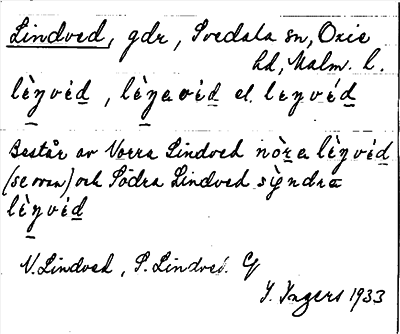 Lindved, gdr, Svedala sn, Oxie
hd, Malm. l.
lèŋvéd, lèŋavéd el. leŋvéd
Består av Norra Lindved nòra lèŋvéd
(se ovan) och Södra Lindved syndra
lèŋvéd
N. Lindved, S. Lindved. Cf
I. Ingers 1933